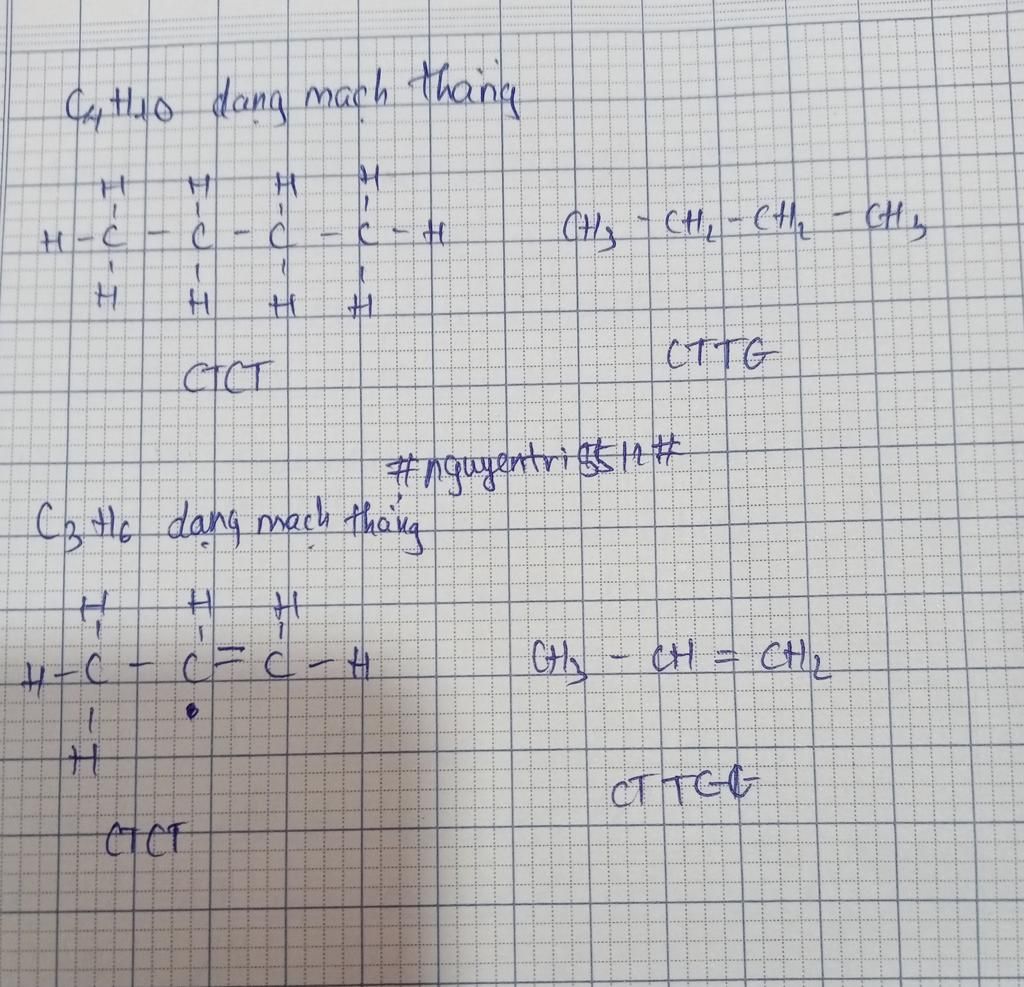 C4H10 dạng mạch thẳng
H H H H
H - C - C - C - C - H CH3 - CH2 - CH2 - CH3
H H H H
CTCT CTTG
#nguyentri 12#
C3H6 dạng mạch thẳng
H H H
H - C - C = C - H CH3 - CH = CH2
H
CTCT CTTG